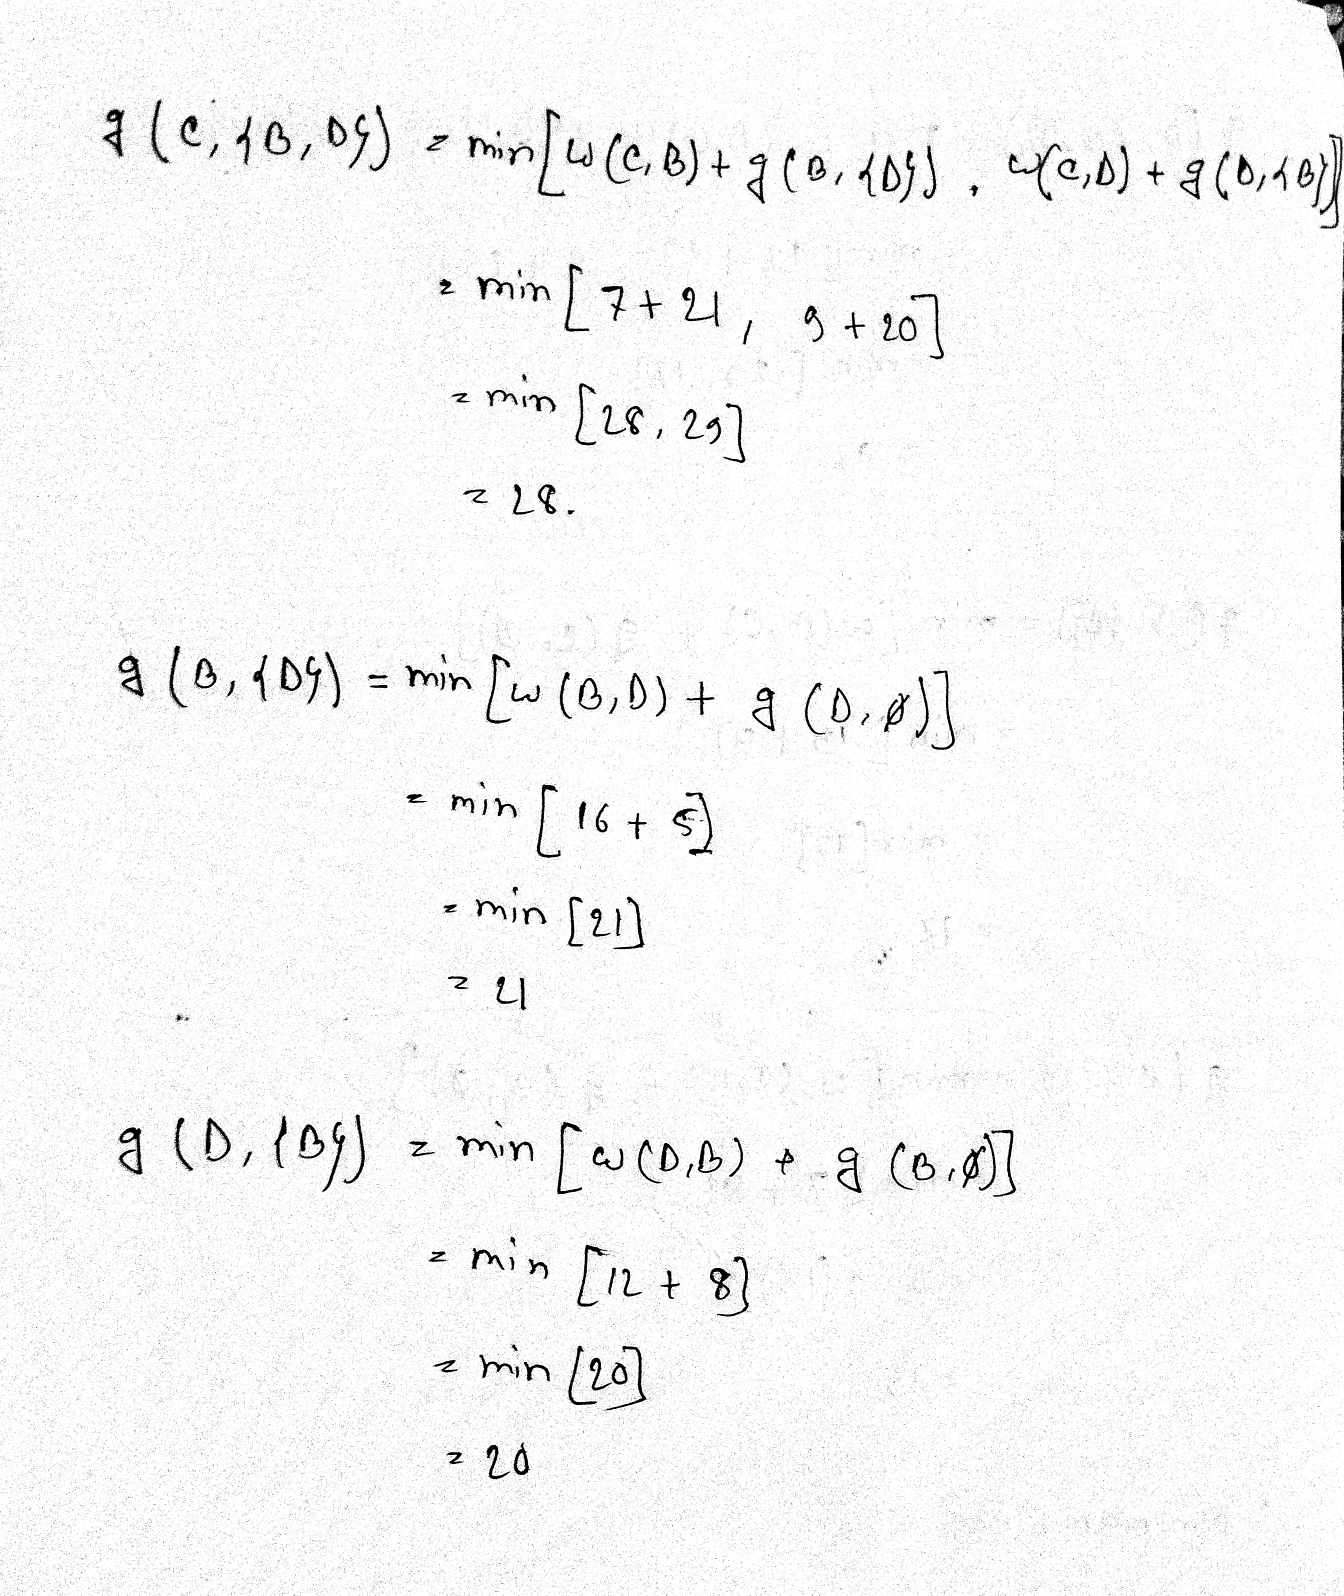 g (C, {B, D}) = min [w (C, B) + g (B, {D}) , w(C,D) + g (D, {B})]
= min [7 + 21, 9 + 20]
= min [28, 29]
= 28.
g (B, {D}) = min [w (B,D) + g (D, ∅)]
= min [16 + 5]
= min [21]
= 21
g (D, {B}) = min [w (D,B) + g (B, ∅)]
= min [12 + 8]
= min [20]
= 20